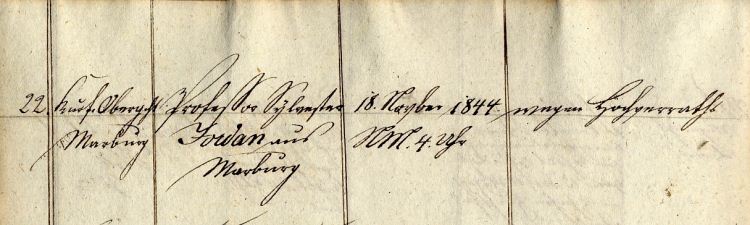 22. Kurf. Obergcht Professor Sylvester 18. Novber 1844 wegen Hochverraths
Marburg Jordan aus NM. 4. Uhr
Marburg